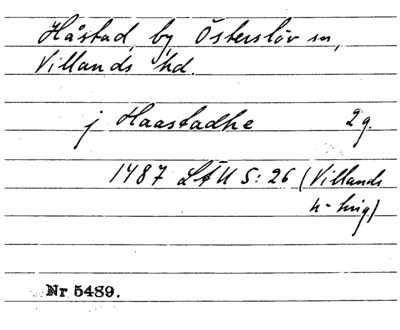 Håstad by Österslöv sn,
Villands hd.
j Haastadhe 2 g.
1487 LÄU 5:26 (Villands
h-brig)
Nr 5489.